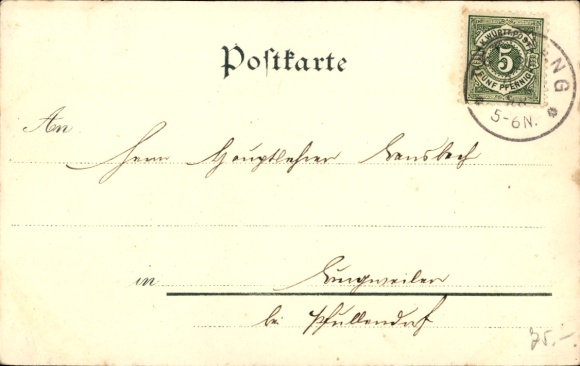 Postkarte
K. WÜRTT. POST
5
FÜNF PFENNIG
NG
5-6N.
An
Herrn Hauptlehrer
in
bei Pfullendorf